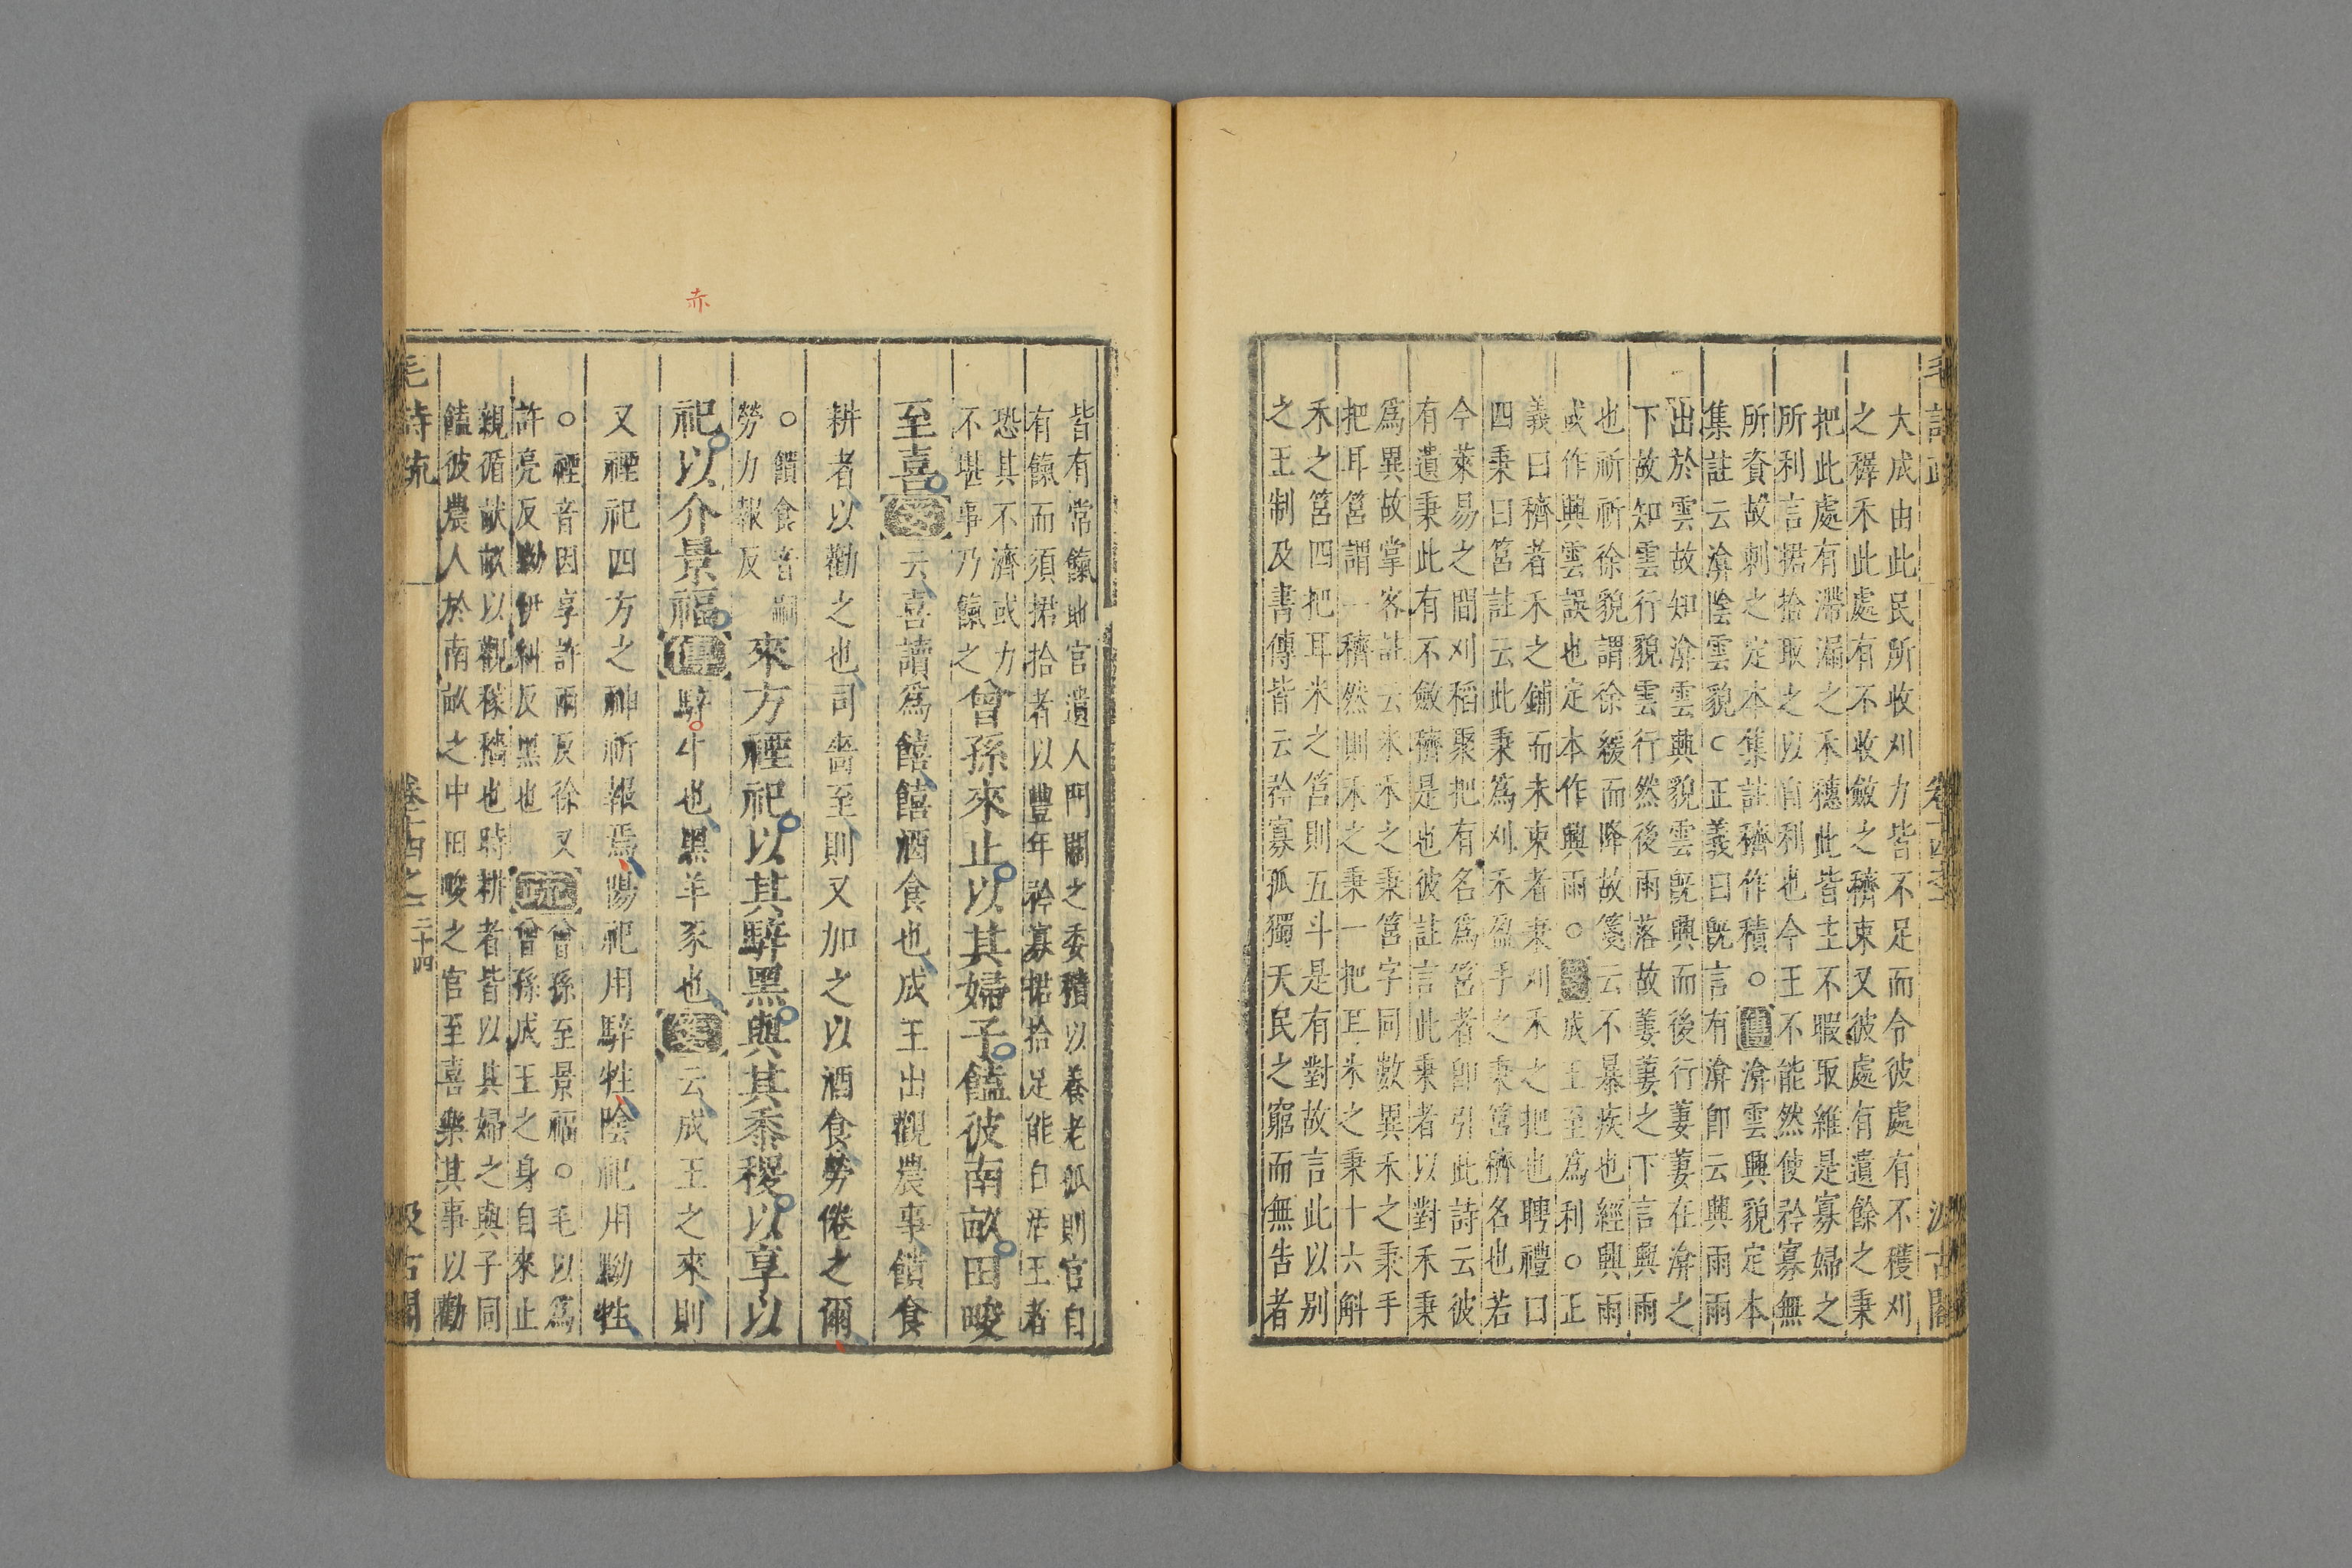 大成由此民所收刈力皆不足而令彼處有不穫刈
之穉禾此處有不收斂之穧束又彼處有遺餘之秉
把此處有滯漏之禾穗此皆主不暇取維是寡婦之
所利言捃拾取之以自利也今王不能然使矜寡無
所資故刺之定本集註穧作積○傳渰雲興貌定本
集註云渰陰雲貌○正義曰旣言有渰卽云興雨雨
出於雲故知渰雲興貌雲旣興而後行萋萋在渰之
下故知雲行貌雲行然後雨落故萋萋之下言興雨
也祈祈徐貌謂徐緩而降故箋云不暴疾也經興雨
或作興雲誤也定本作興雨○箋成王至爲利○正
義曰穧者禾之鋪而未束者秉刈禾之把也聘禮曰
四秉曰筥註云此秉爲刈禾盈手之秉筥穧名也若
今萊易之間刈稻聚把有名爲筥者卽引此詩云彼
有遺秉此有不斂穧是也彼註言此秉者以對禾秉
爲異故掌客註云米禾之秉筥字同數異禾之秉手
把耳筥謂一穧然則禾之秉一把耳米之秉十六斛
禾之筥四把耳米之筥則五斗是有對故言此以别
之王制及書傳皆云矜寡孤獨天民之窮而無告者
毛詩疏 卷十四之二 汲古閣
皆有常餼地官遺人門關之委積以養老孤則官自
有餼而須捃拾者以豐年矜寡捃拾足能自活王者
恐其不濟或力
不堪事乃餼之
曾孫來止以其婦子饁彼南畝田畯
至喜箋云喜讀爲饎饎酒食也成王出觀農事饋食
耕者以勸之也司嗇至則又加之以酒食勞倦之爾
○饋食音嗣
勞力報反
來方禋祀以其騂黑與其黍稷以享以
祀以介景福傳騂牛也黑羊豕也箋云成王之來則
又禋祀四方之神祈報焉陽祀用騂牲陰祀用黝牲
○禋音因享許兩反徐又
許亮反黝伊糾反黑也
疏曾孫至景福○毛以爲
曾孫成王之身自來止
親循畎畝以觀稼穡也時耕者皆以其婦之與子同
饁彼農人於南畝之中田畯之官至喜樂其事以勸
毛詩疏 卷十四之二 二十四 汲古閣
赤